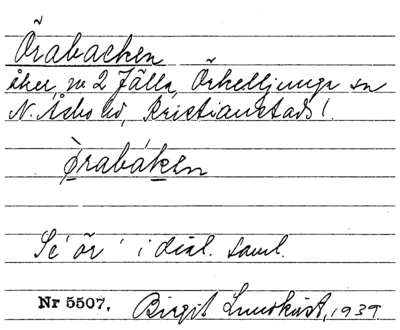 Örabacken
åker, nr 2 Fälla, Örkelljunga sn
N. Åsbo hd, Kristianstads l.
ø̀rabáken
Se 'ör' i dial. saml.
Nr 5507. Birgit Lundkvist, 1939.